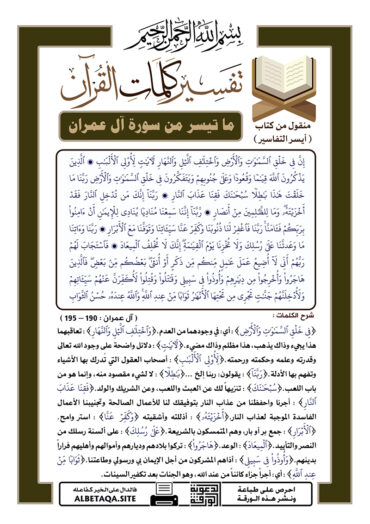 بِسْمِ اللَّهِ الرَّحْمَٰنِ الرَّحِيمِ
تفسير كلمات القرآن
ما تيسر من سورة آل عمران
منقول من كتاب
( أيسر التفاسير )
إِنَّ فِي خَلْقِ السَّمَوَاتِ وَالْأَرْضِ وَاخْتِلَافِ الَّيْلِ وَالنَّهَارِ لَآيَاتٍ لِأُوْلِي الْأَلْبَابِ * الَّذِينَ
يَذْكُرُونَ اللَّهَ قِيَامًا وَقُعُودًا وَعَلَى جُنُوبِهِمْ وَيَتَفَكَّرُونَ فِي خَلْقِ السَّمَوَاتِ وَالْأَرْضِ رَبَّنَا مَا
خَلَقْتَ هَذَا بَاطِلًا سُبْحَانَكَ فَقِنَا عَذَابَ النَّارِ * رَبَّنَا إِنَّكَ مَن تُدْخِلِ النَّارَ فَقَدْ
أَخْزَيْتَهُ وَمَا لِلظَّالِمِينَ مِنْ أَنصَارٍ * رَبَّنَا إِنَّنَا سَمِعْنَا مُنَادِيًا يُنَادِي لِلْإِيمَانِ أَنْ ءَامِنُوا
بِرَبِّكُمْ فَآمَنَّا رَبَّنَا فَاغْفِرْ لَنَا ذُنُوبَنَا وَكَفِّرْ عَنَّا سَيِّئَاتِنَا وَتَوَفَّنَا مَعَ الْأَبْرَارِ * رَبَّنَا وَءَاتِنَا
مَا وَعَدتَّنَا عَلَى رُسُلِكَ وَلَا تُخْزِنَا يَوْمَ الْقِيَامَةِ إِنَّكَ لَا تُخْلِفُ الْمِيعَادَ * فَاسْتَجَابَ لَهُمْ
رَبُّهُمْ أَنِّي لَا أُضِيعُ عَمَلَ عَامِلٍ مِنكُم مِن ذَكَرٍ أَوْ أُنثَى بَعْضُكُم مِن بَعْضٍ فَالَّذِينَ
هَاجَرُوا وَأُخْرِجُوا مِن دِيَارِهِمْ وَأُوذُوا فِي سَبِيلِي وَقَاتَلُوا وَقُتِلُوا لَأُكَفِّرَنَّ عَنْهُمْ سَيِّئَاتِهِمْ
وَلَأُدْخِلَنَّهُمْ جَنَّاتٍ تَجْرِي مِن تَحْتِهَا الْأَنْهَارُ ثَوَابًا مِنْ عِندِ اللَّهِ وَاللَّهُ عِندَهُ حُسْنُ الثَّوَابِ
شرح الكلمات :
( آل عمران : 190 – 195 )
﴿فِي خَلْقِ السَّمَوَاتِ وَالْأَرْضِ﴾ : أي: في وجودهما من العدم. ﴿وَاخْتِلَافِ الَّيْلِ وَالنَّهَارِ﴾ : تعاقبهما
هذا يجيء وذاك يذهب، هذا مظلم وذاك مضيء. ﴿لَآيَاتٍ﴾ : دلائل واضحة على وجود الله تعالى
وقدرته وعلمه وحكمته ورحمته. ﴿لِأُوْلِي الْأَلْبَابِ﴾ : أصحاب العقول التي تدرك بها الأشياء
وتفهم بها الأدلة. ﴿رَبَّنَا﴾ : يقولون: ربنا إلخ ... ﴿بَاطِلًا﴾ : لا لشيء مقصود منه، وإنما هو من
باب اللعب. ﴿سُبْحَانَكَ﴾ : تنزيهاً لك عن العبث واللعب، وعن الشريك والولد. ﴿فَقِنَا عَذَابَ
النَّارِ﴾ : أجرنا واحفظنا من عذاب النار بتوفيقك لنا للأعمال الصالحة وتجنيبنا الأعمال
الفاسدة الموجبة لعذاب النار. ﴿أَخْزَيْتَهُ﴾ : أذللته وأشقيته ﴿وَكَفِّرْ عَنَّا﴾ : استر وامح.
﴿الْأَبْرَارِ﴾ : جمع بر أو بار، وهم المتمسكون بالشريعة. ﴿عَلَى رُسُلِكَ﴾ : على ألسنة رسلك من
النصر والتأييد. ﴿الْمِيعَادَ﴾ : الوعد. ﴿هَاجَرُوا﴾ : تركوا بلادهم وديارهم وأموالهم وأهليهم فراراً
بدينهم. ﴿وَأُوذُوا فِي سَبِيلِي﴾ : آذاهم المشركون من أجل الإيمان بي ورسولي وطاعتنا. ﴿ثَوَابًا مِنْ
عِندِ اللَّهِ﴾ : أي: أجراً جزاء كائناً من عند الله، وهو الجنات بعد تكفير السيئات.
احرص على طباعة
ونشر هذه الورقة
فالدال على الخير كفاعله
ALBETAQA.SITE